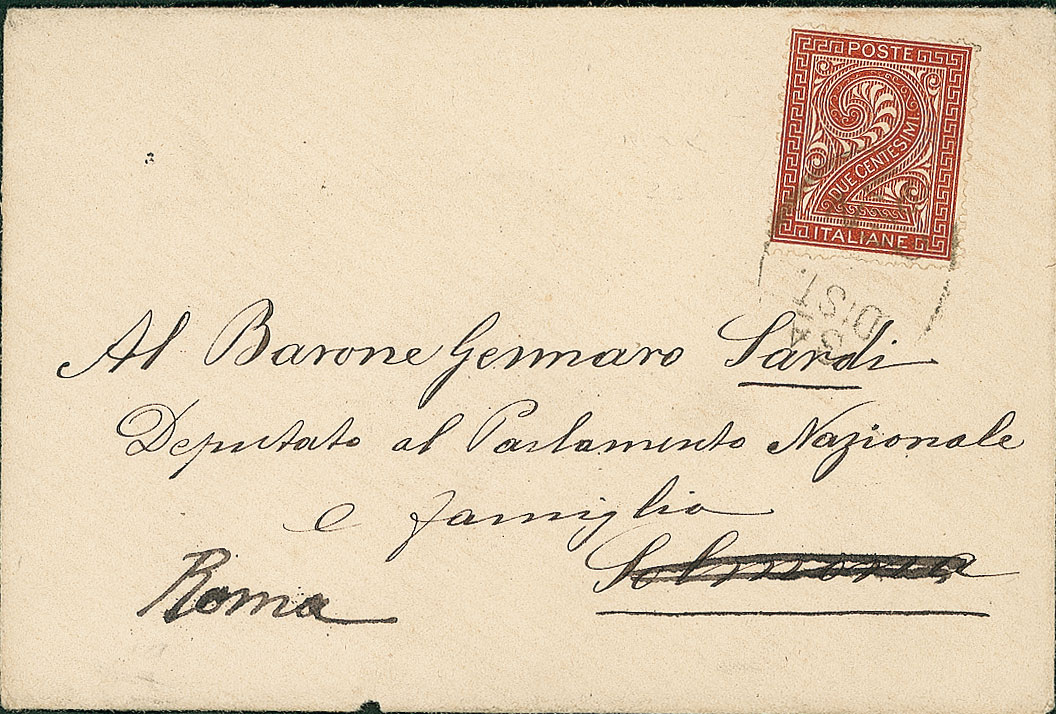 POSTE
2
DUE CENTESIMI
ITALIANE
DIST.
Al Barone Gennaro Sardi
Deputato al Parlamento Nazionale
e famiglia
Solmona
Roma